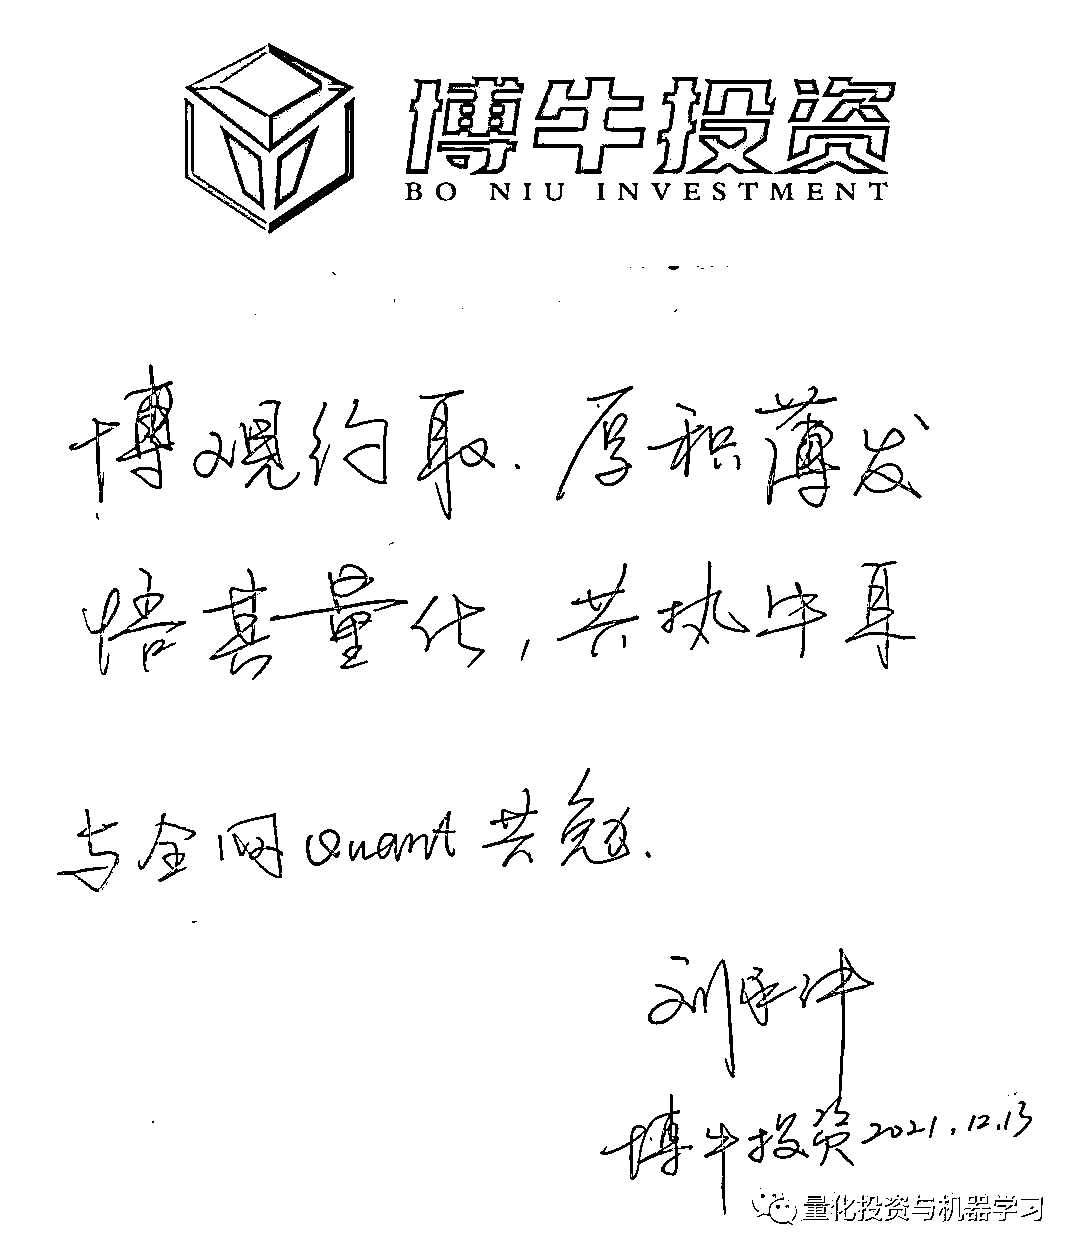 博牛投资
BO NIU INVESTMENT
博观约取.厚积薄发
悟其量化,共执牛耳
与全网Quant共勉.
刘
博牛投资2021.12.13
量化投资与机器学习